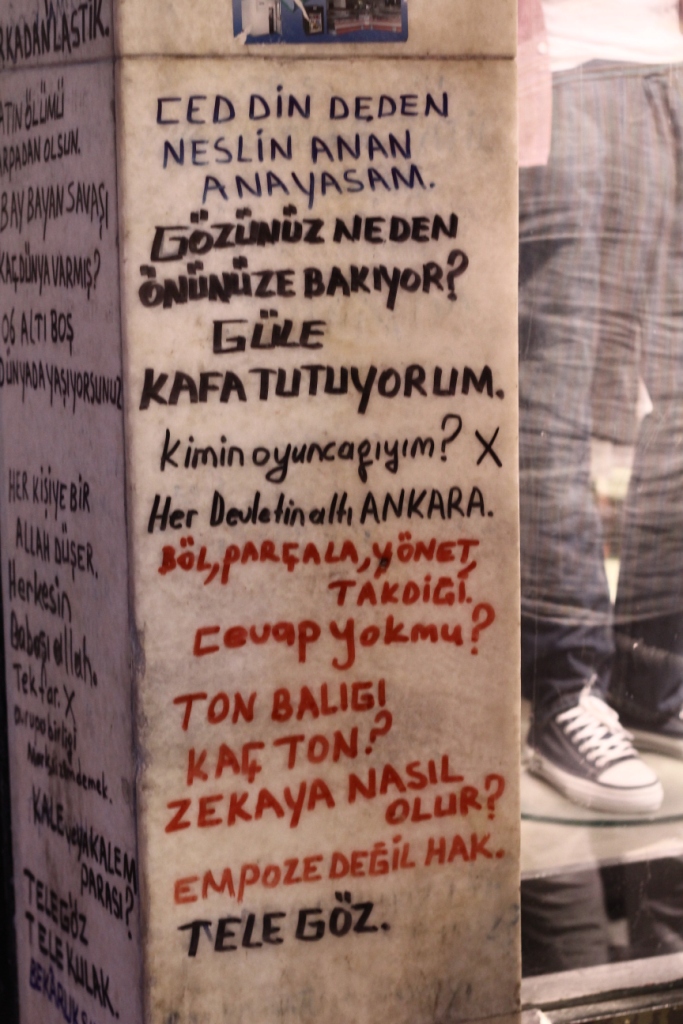 RKADAN LASTİK.
ATIN ÖLÜMÜ
ARPADAN OLSUN.
BAY BAYAN SAVAŞI
KAÇ DÜNYA VARMIŞ?
06 ALTI BOŞ
DÜNYADA YAŞIYORSUNUZ
HER KİŞİYE BİR
ALLAH DÜŞER.
Herkesin
Babası allah.
Tekfar. X
KALE veya KALEM
PARASI?
TELEGÖZ
TELE KULAK.
CED DİN DEDEN
NESLİN ANAN
ANAYASAM.
GÖZÜNÜZ NEDEN
ÖNÜNÜZE BAKIYOR?
GÜLE
KAFA TUTUYORUM.
Kimin oyuncağıyım? X
Her Devletin altı ANKARA.
BÖL, PARÇALA, YÖNET,
TAKDİĞİ.
Cevap yokmu?
TON BALIGI
KAÇ TON?
ZEKAYA NASIL
OLUR?
EMPOZE DEĞİL HAK.
TELE GÖZ.